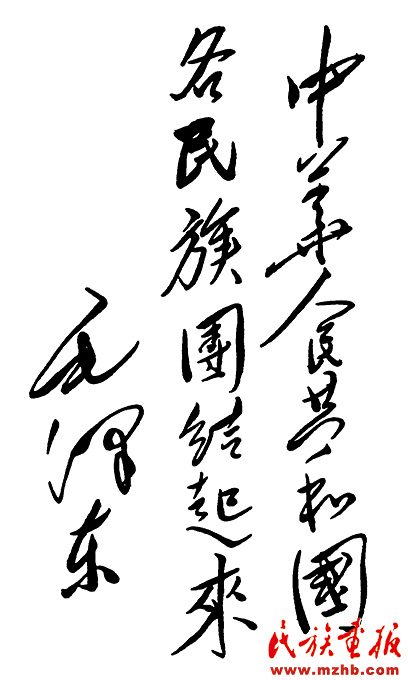 中华人民共和國
各民族團结起來
毛泽东
民族画报
www.mzhb.com